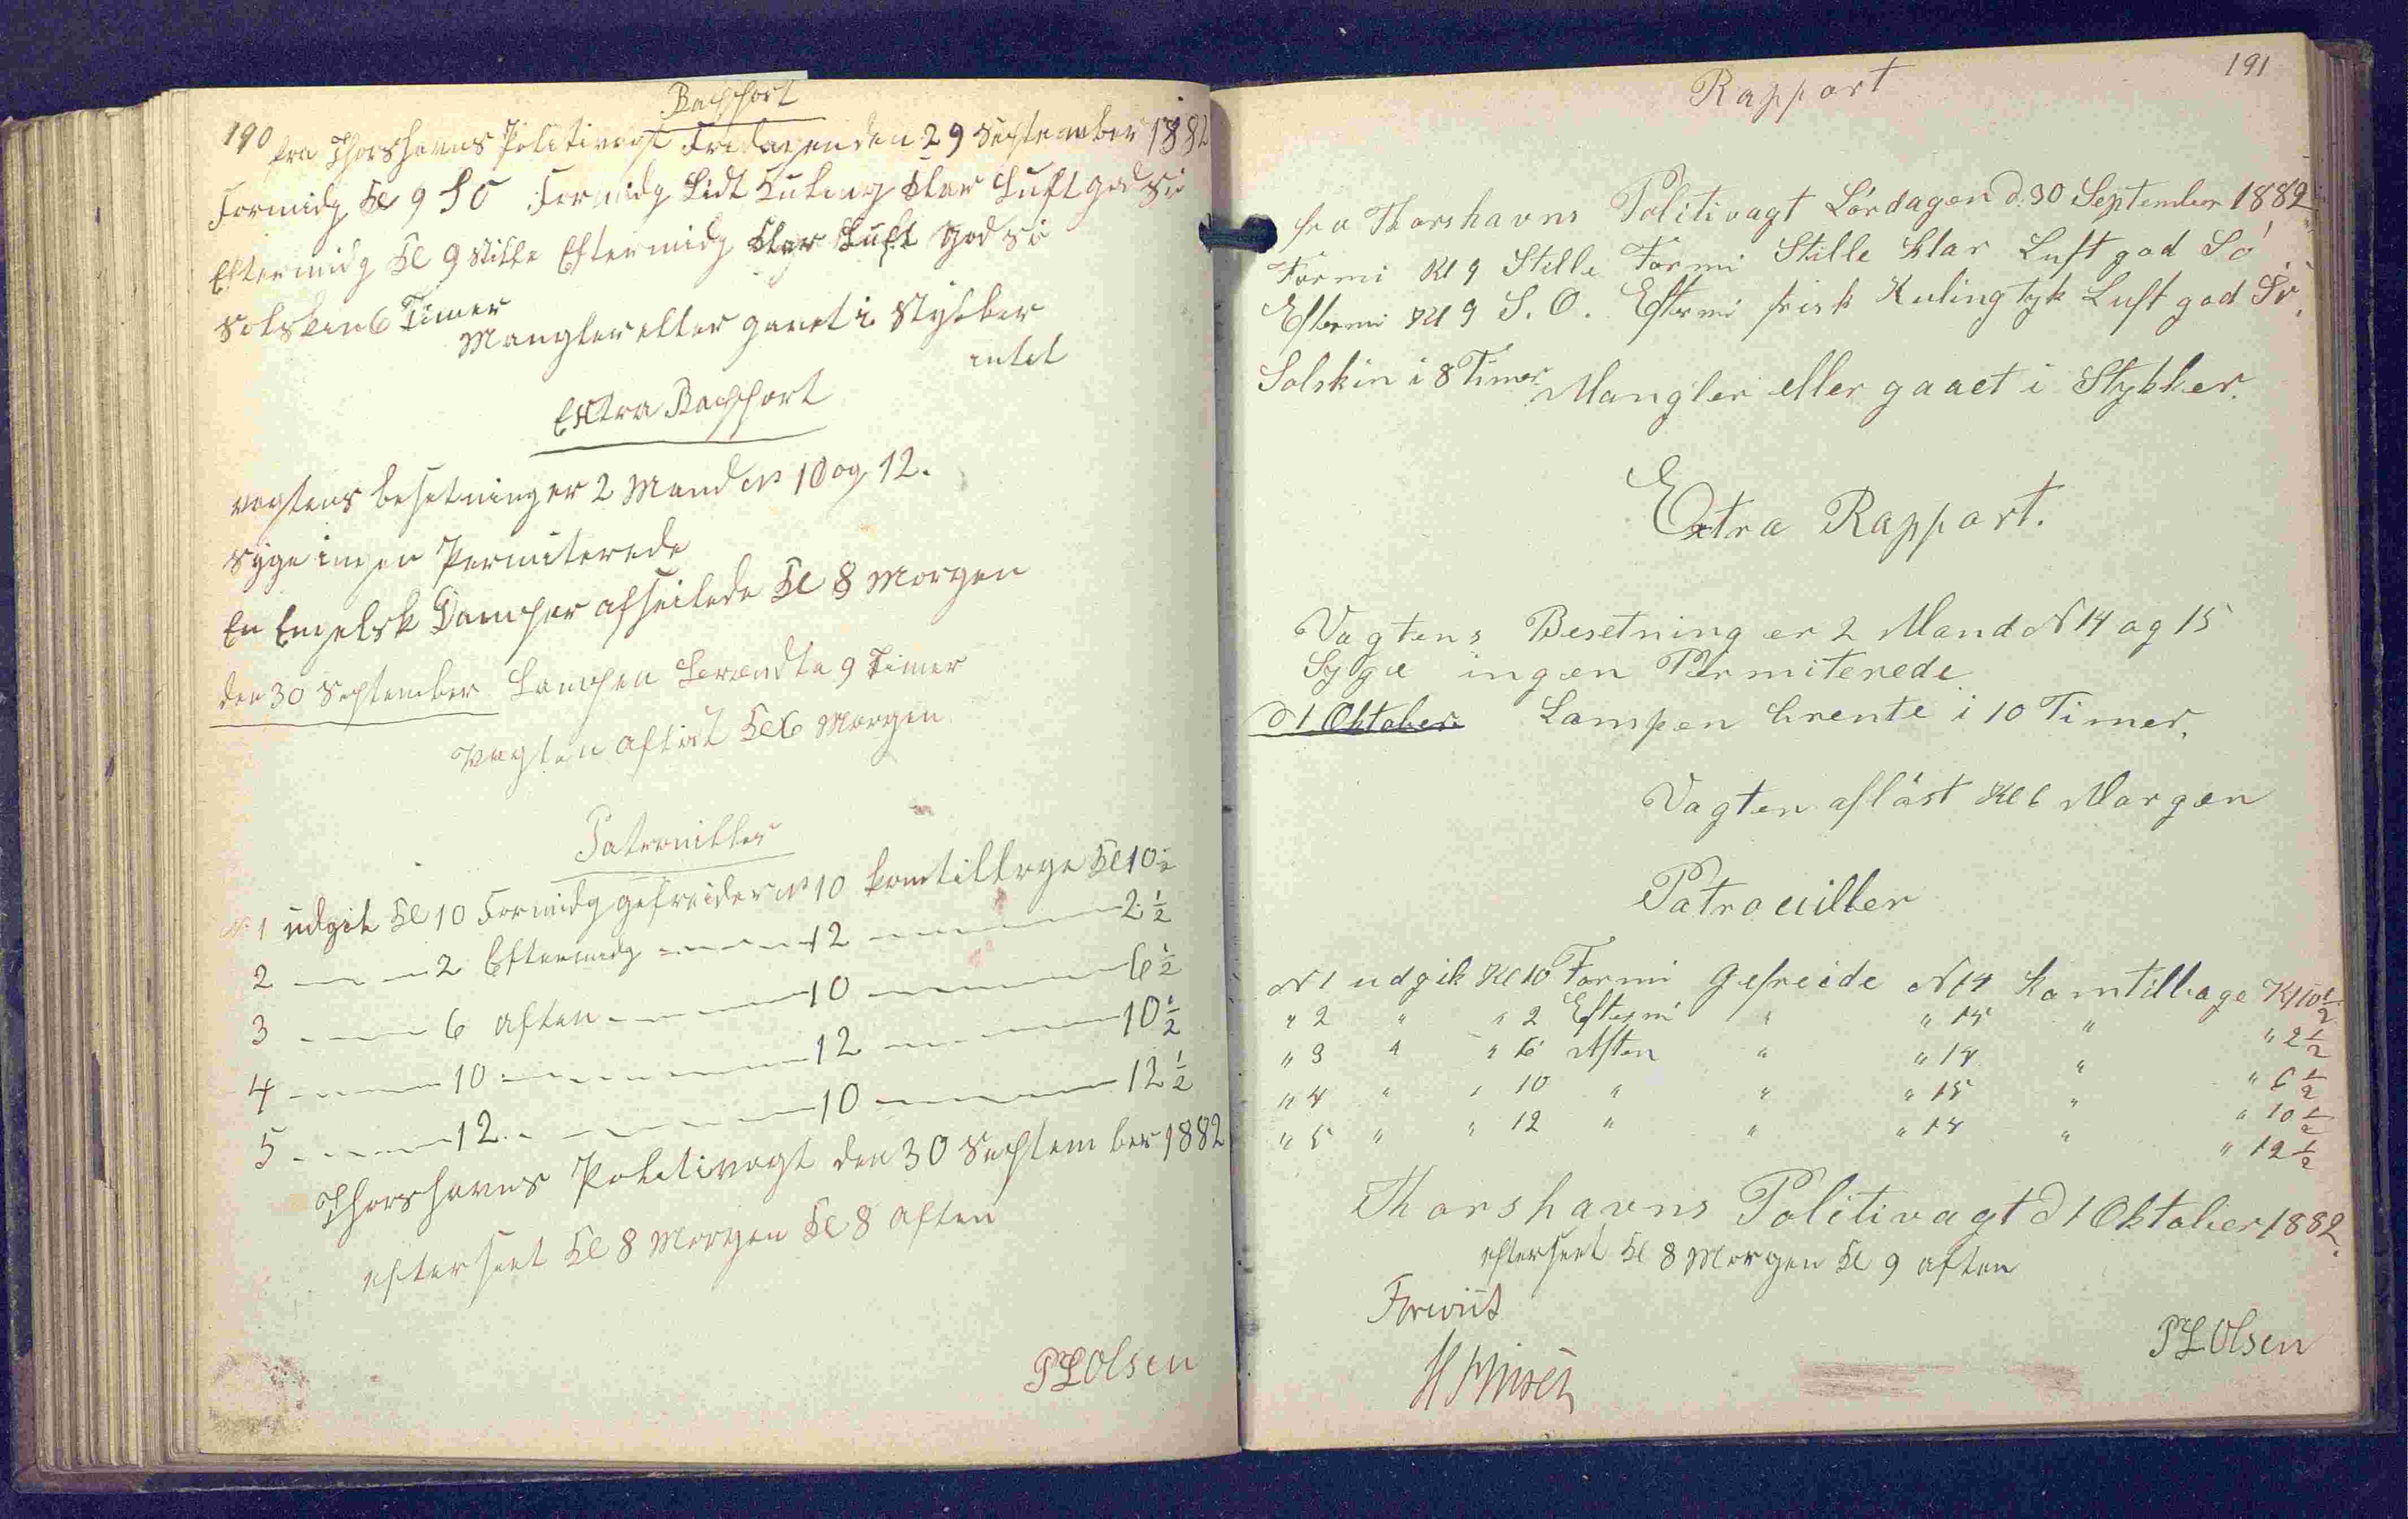 190
Rapport
fra Thorshavns Politivagt Fredagen den 29 September 1882
Formidg Kl 9 SO Formidg Lidt Kuling klar Luft god Sö
Eftermidg Kl 9 Stille Eftermidg klar Luft god Sö
Solskin 6 Timer
Mangler eller gaaet i Stykker
intet
Extra Rapport
vagtens besetning er 2 Mand No 10 og 12.
Syge ingen Permiterede
En Engelsk Damper afseilede Kl 8 Morgen
den 30 September Lampen brændte 9 Timer
Vagten aflöst Kl 6 Morgen
Patrouiller
No 1 udgik Kl 10 Formidg gefreider No 10 kom tilbage Kl 10 1/2
2 — — 2 Eftermidg — — 12 — — 2 1/2
3 — — 6 aften — — 10 — — 6 1/2
4 — — 10 — — 12 — — 10 1/2
5 — — 12 — — 10 — — 12 1/2
Thorshavns Politivagt den 30 September 1882
efterseet Kl 8 Morgen Kl 8 aften
PL Olsen
191
Rapport
fra Thorshavns Politivagt Lördagen d. 30 September 1882
Formi Kl 9 Stille Formi Stille klar Luft god Sö
Eftermi Kl 9 S. O. Eftermi frisk Kuling tyk Luft god Sö.
Solskin i 8 Timer
Mangler eller gaaet i Stykker.
Extra Rapport.
Vagtens Besetning er 2 Mand N 14 og 15
Syge ingen Permiterede
d 1 Oktober Lampen brente i 10 Timer.
Vagten aflöst Kl 6 Morgen
Patrouiller
N 1 udgik Kl 10 Formi Gefreide N 14 kom tilbage Kl 10 1/2
" 2 " " 2 Eftermi " " 15 " " 2 1/2
" 3 " " 6 Aften " " 14 " " 6 1/2
" 4 " " 10 " " " 15 " " 10 1/2
" 5 " " 12 " " " 14 " " 12 1/2
Thorshavns Politivagt d 1 Oktober 1882.
efterseet Kl 8 Morgen Kl 9 aften
Foreviist
PL Olsen